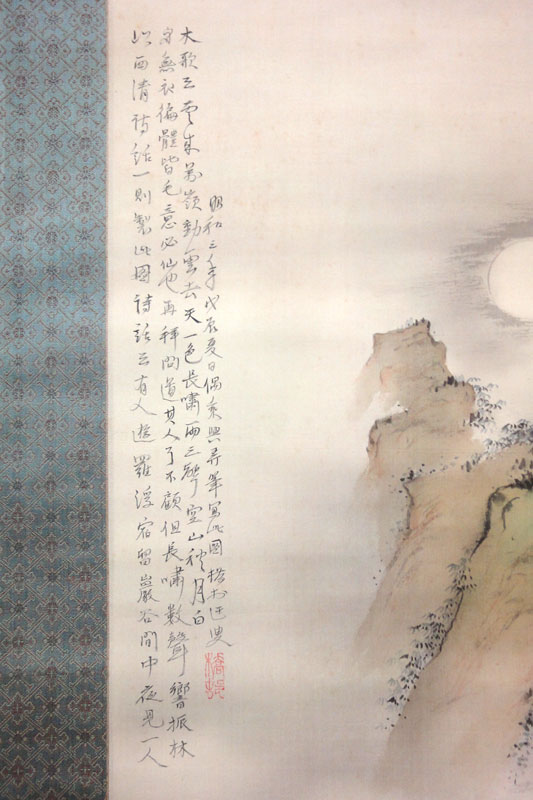 以西清詩話一則製此圖詩話云有人遊羅浮宿留巖谷間中夜見一人
身無衣徧體皆毛意必仙也再拜問道其人了不顧但長嘯數聲響振林
木歌云雲來萬嶺動雲去天一色長嘯兩三聲空山秋月白
昭和三年戊辰夏日偶乘興弄筆寫此圖迂叟